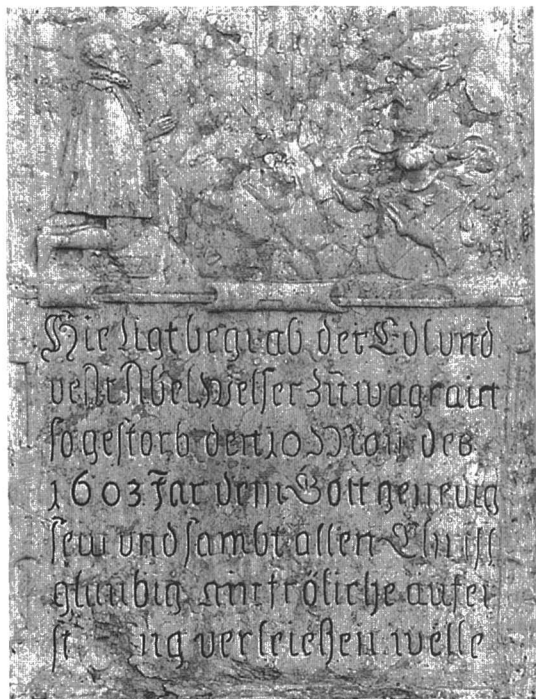 Hie ligt begrab der Edl und
vesst Abel Welser zu wagrain
so gestorb den 10 May des
1603 Jar dem Gott genedig
sein und sambt allen Christ
glaubig ain fröliche aufer
st ng verleichen welle